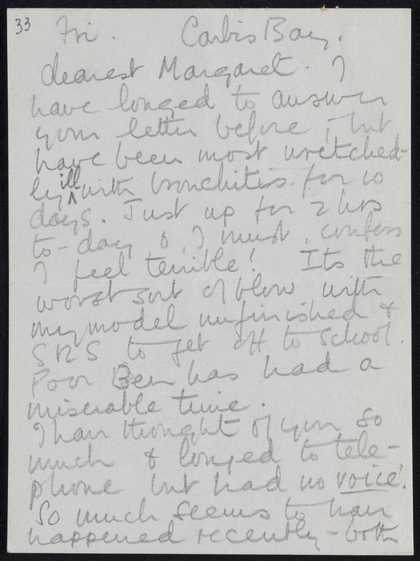 33
Fri. Carbis Bay.
dearest Margaret. I
have longed to answer
your letter before, but
have been most wretched-
ly ill with bronchitis for 10
days. Just up for 2 hrs
to-day & I must confess
I feel terrible! Its the
worst sort of blow with
my model unfinished &
SRS to get off to School.
Poor Ben has had a
miserable time.
I have thought of you so
much & longed to tele-
phone but had no voice!
So much seems to have
happened recently - both